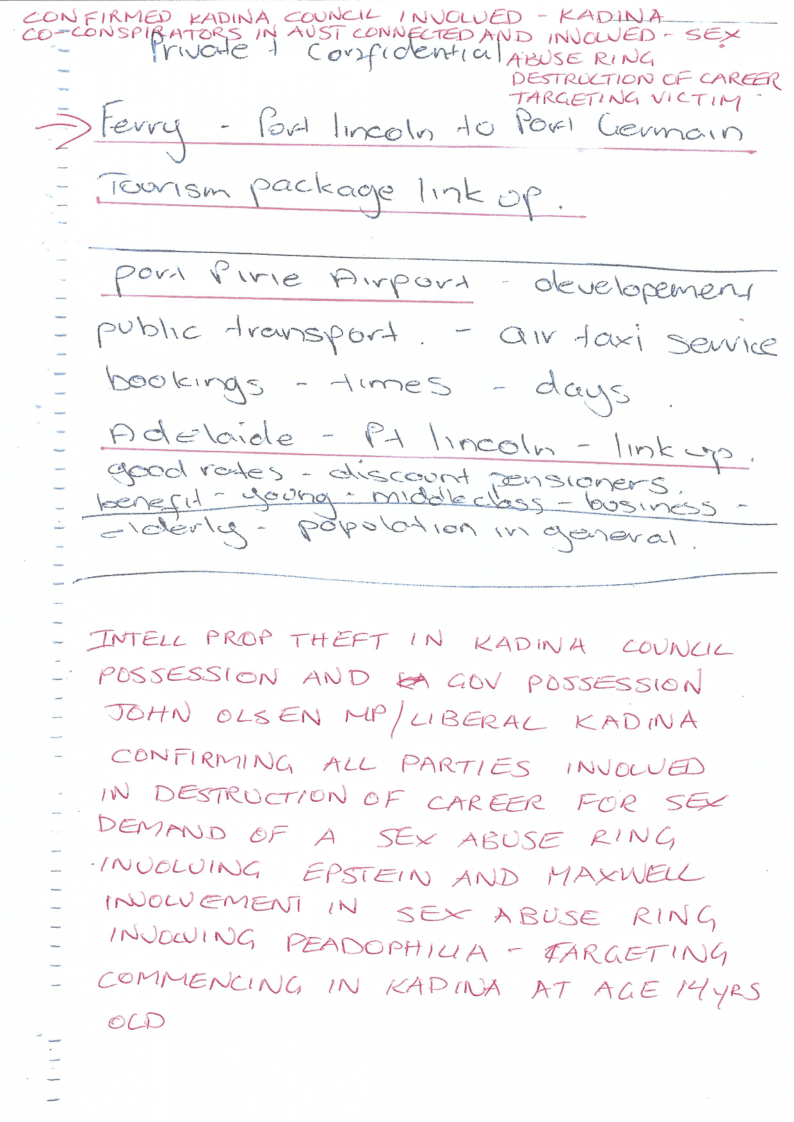 CONFIRMED KADINA COUNCIL INVOLVED - KADINA
CO-CONSPIRATORS IN AUST CONNECTED AND INVOLVED - SEX
Private + Confidential ABUSE RING
DESTRUCTION OF CAREER
TARGETING VICTIM
Ferry - Port lincoln to Port Germain
Tourism package link up.
port Pirie Airport - developement
public transport. - air taxi service
bookings - times - days.
Adelaide - Pt lincoln - link up.
good rates - discount pensioners.
benefit - young - middle class - business -
elderly - population in general.
INTELL PROP THEFT IN KADINA COUNCIL
POSSESSION AND GOV POSSESSION
JOHN OLSEN MP/LIBERAL KADINA
CONFIRMING ALL PARTIES INVOLVED
IN DESTRUCTION OF CAREER FOR SEX
DEMAND OF A SEX ABUSE RING
INVOLVING EPSTEIN AND MAXWELL
INVOLVEMENT IN SEX ABUSE RING
INVOLVING PEADOPHILIA - TARGETING
COMMENCING IN KADINA AT AGE 14 YRS
OLD